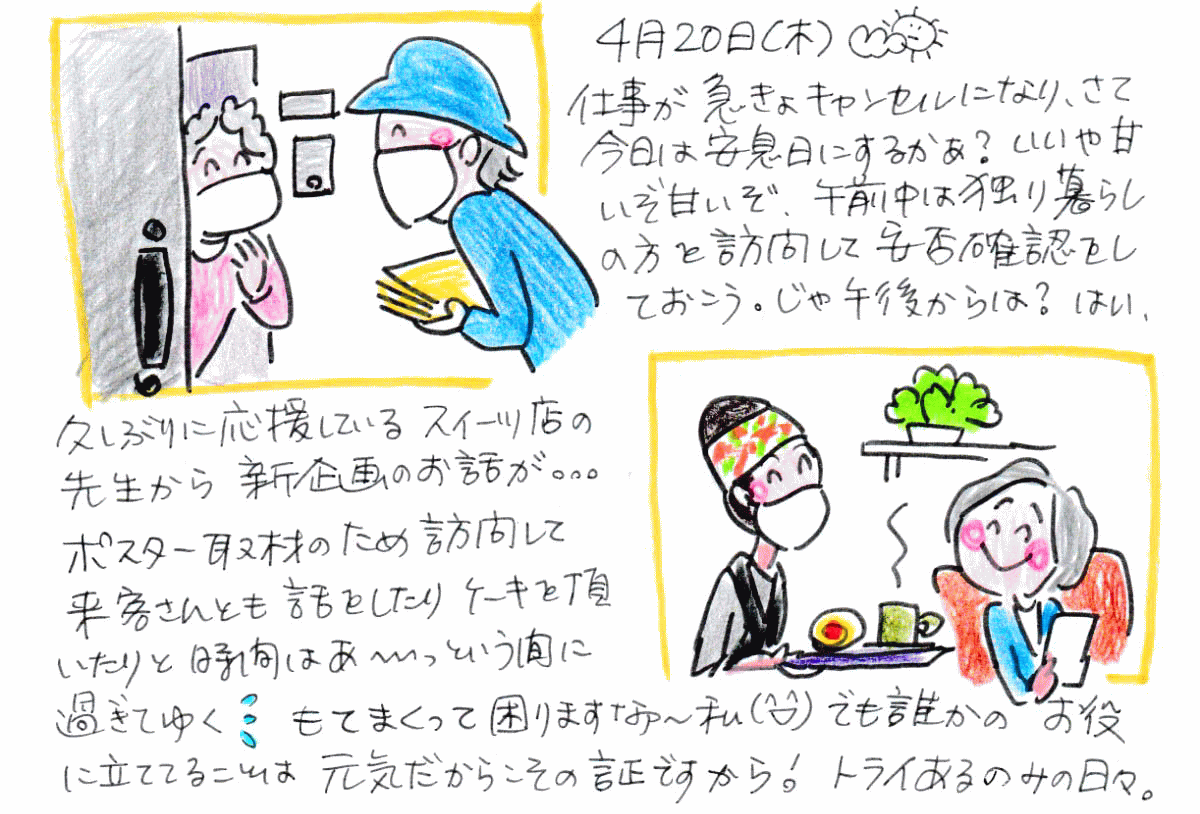 4月20日(木)
仕事が急きょキャンセルになり、さて
今日は安息日にするかぁ？いいや甘
いぞ甘いぞ、午前中は独り暮らし
の方を訪問して安否確認をし
ておこう。じゃ午後からは？はい、
久しぶりに応援しているスイーツ店の
先生から新企画のお話が。。。
ポスター取材のため訪問して
来客さんとも話をしたりケーキを頂
いたりと時間はあ〜〜っという間に
過ぎてゆく もてまくって困りますなァ〜私(^^)でも誰かのお役
に立ててることは元気だからこその証ですから！トライあるのみの日々。